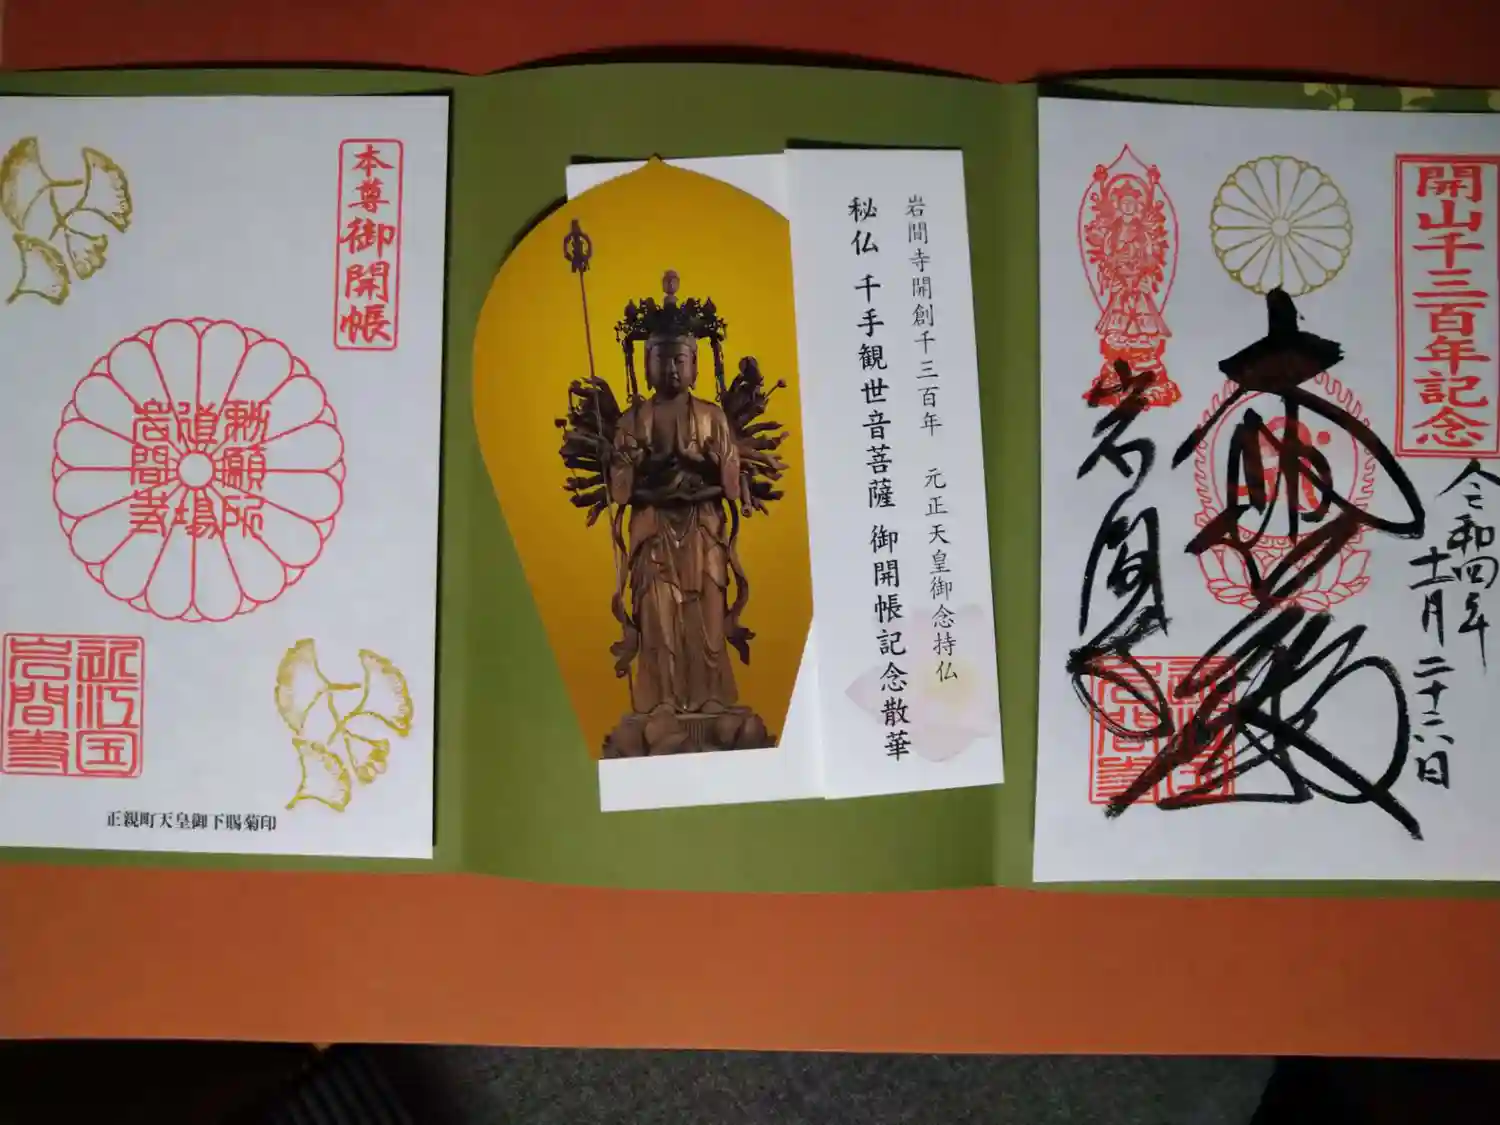 本尊御開帳
勅願所
道場
岩間寺
近江国
岩間寺
正親町天皇御下賜菊印
岩間寺開創千三百年 元正天皇御念持仏
秘仏 千手観世音菩薩 御開帳記念散華
開山千三百年記念
令和四年
十一月二十六日
大悲殿
岩間寺
近江国
岩間寺